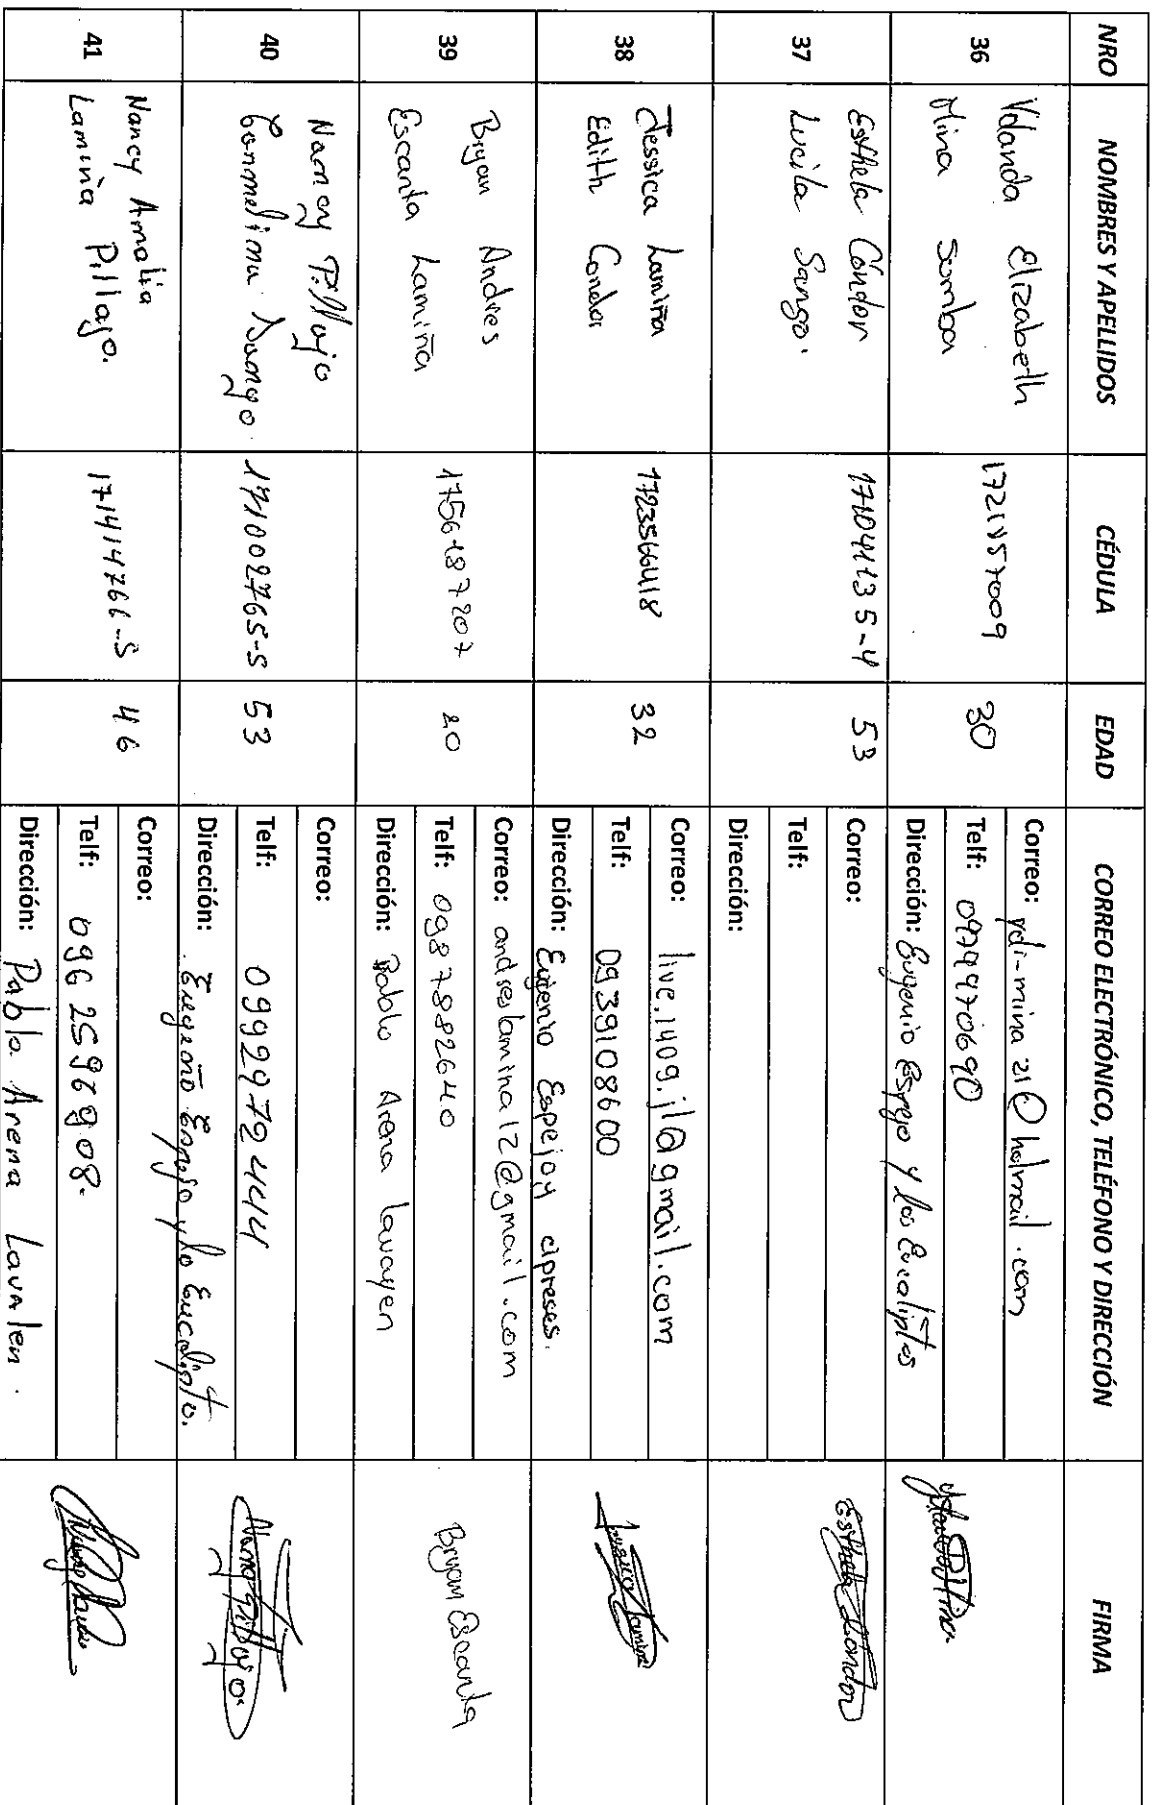 NRO NOMBRES Y APELLIDOS CÉDULA EDAD CORREO ELECTRÓNICO, TELÉFONO Y DIRECCIÓN FIRMA
36
Yolanda Elizabeth
Mina Simba
30
Correo: ydi-mina21@hotmail.com
Telf: 0979970690
Dirección: Eugenio Espejo y los Eucaliptos
37
Esthela Cóndor
Lucila Sango.
171041135-4
53
Correo:
Telf:
Dirección:
Esthela Condor
38
Jessica Lamiña
Edith Condor
1723566418
32
Correo: live.1409.jl@gmail.com
Telf: 0939108600
Dirección: Eugenio Espejo y cipreses.
39
Bryan Andres
Escanta Lamiña
1756187207
20
Correo: andreslamina12@gmail.com
Telf: 0987882640
Dirección: Pablo Arena Lavayen
Bryan Escanta
40
Nancy Pillajo
Sango.
171002765-5
53
Correo:
Telf: 0992972444
Dirección: Eugenio Espejo y lo Eucalipto.
41
Nancy Amalia
Lamiña Pillajo.
171414766-5
46
Correo:
Telf: 0962596908.
Dirección: Pablo Arena Lavalen.